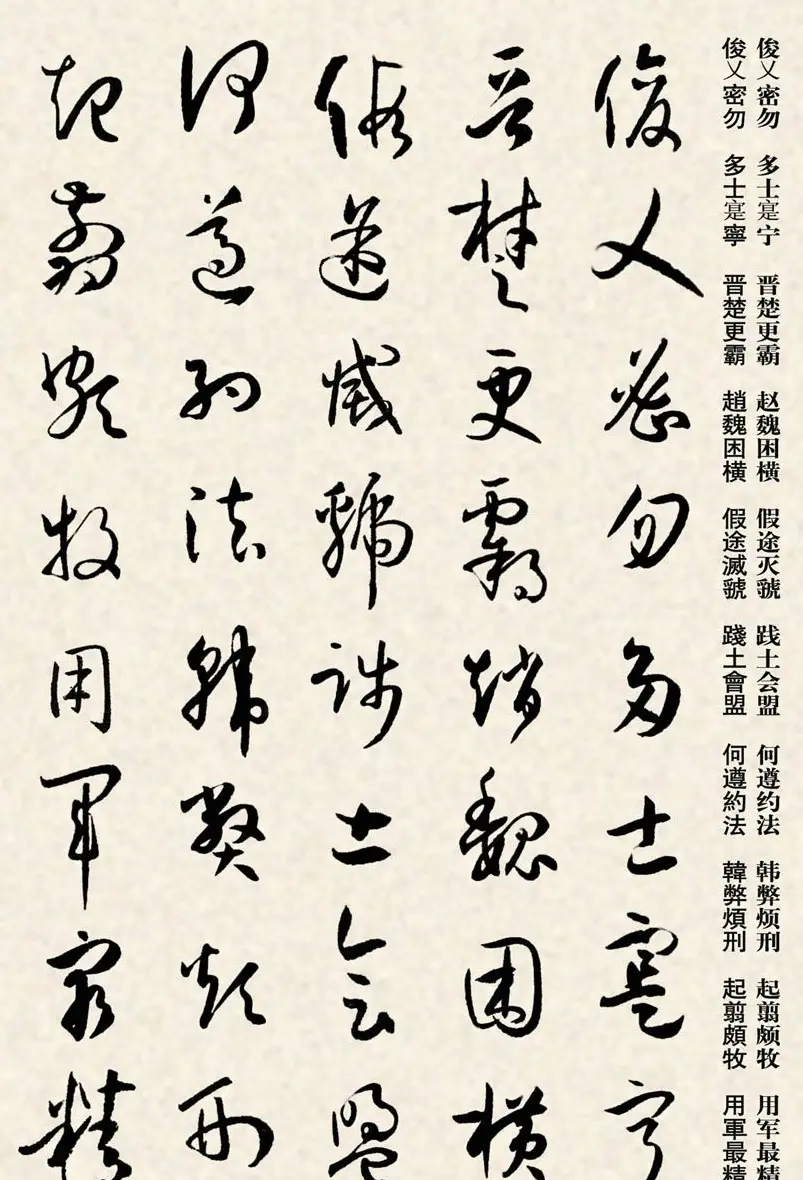 俊乂密勿 多士寔宁 晋楚更霸 赵魏困横 假途灭虢 践土会盟 何遵约法 韩弊烦刑 起翦颇牧 用军最精
俊乂密勿 多士寔寧 晋楚更霸 趙魏困横 假途滅虢 踐土會盟 何遵約法 韓弊煩刑 起翦頗牧 用軍最精
俊乂密勿多士寔寧
晋楚更霸趙魏困横
假途滅虢踐土會盟
何遵約法韓弊煩刑
起翦頗牧用軍最精